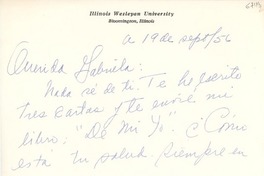 Illinois Wesleyan University
Bloomington, Illinois
a 19 de sept/56
Querida Gabriela:
Nada sé de ti. Te he escrito
tres cartas y te envié mi
libro: "De Mi Yo". ¿Cómo
está tu salud. Siempre en